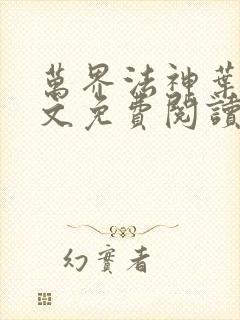 萬界法神葉
文免費閱讀
幻實者